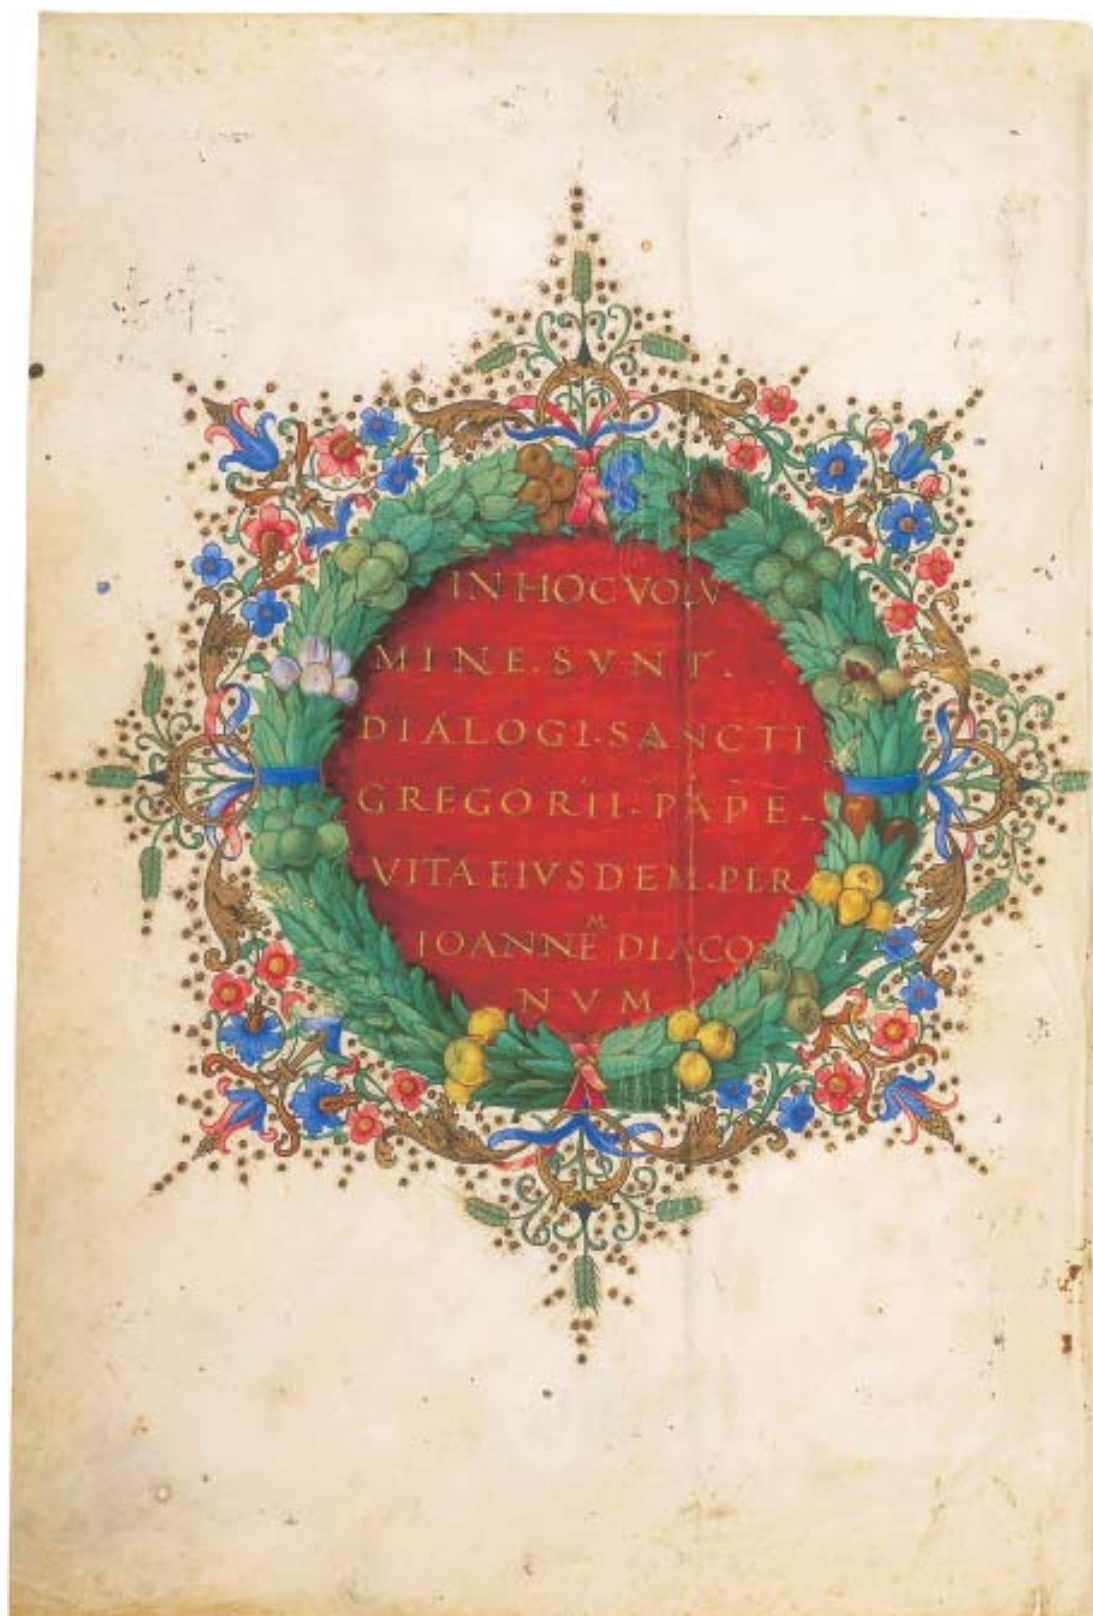 IN HOC VOLV
MINE . SVNT .
DIALOGI . SANCTI
GREGORII . PAPE .
VITA EIVSDEM . PER
IOANNEM DIACO
NVM